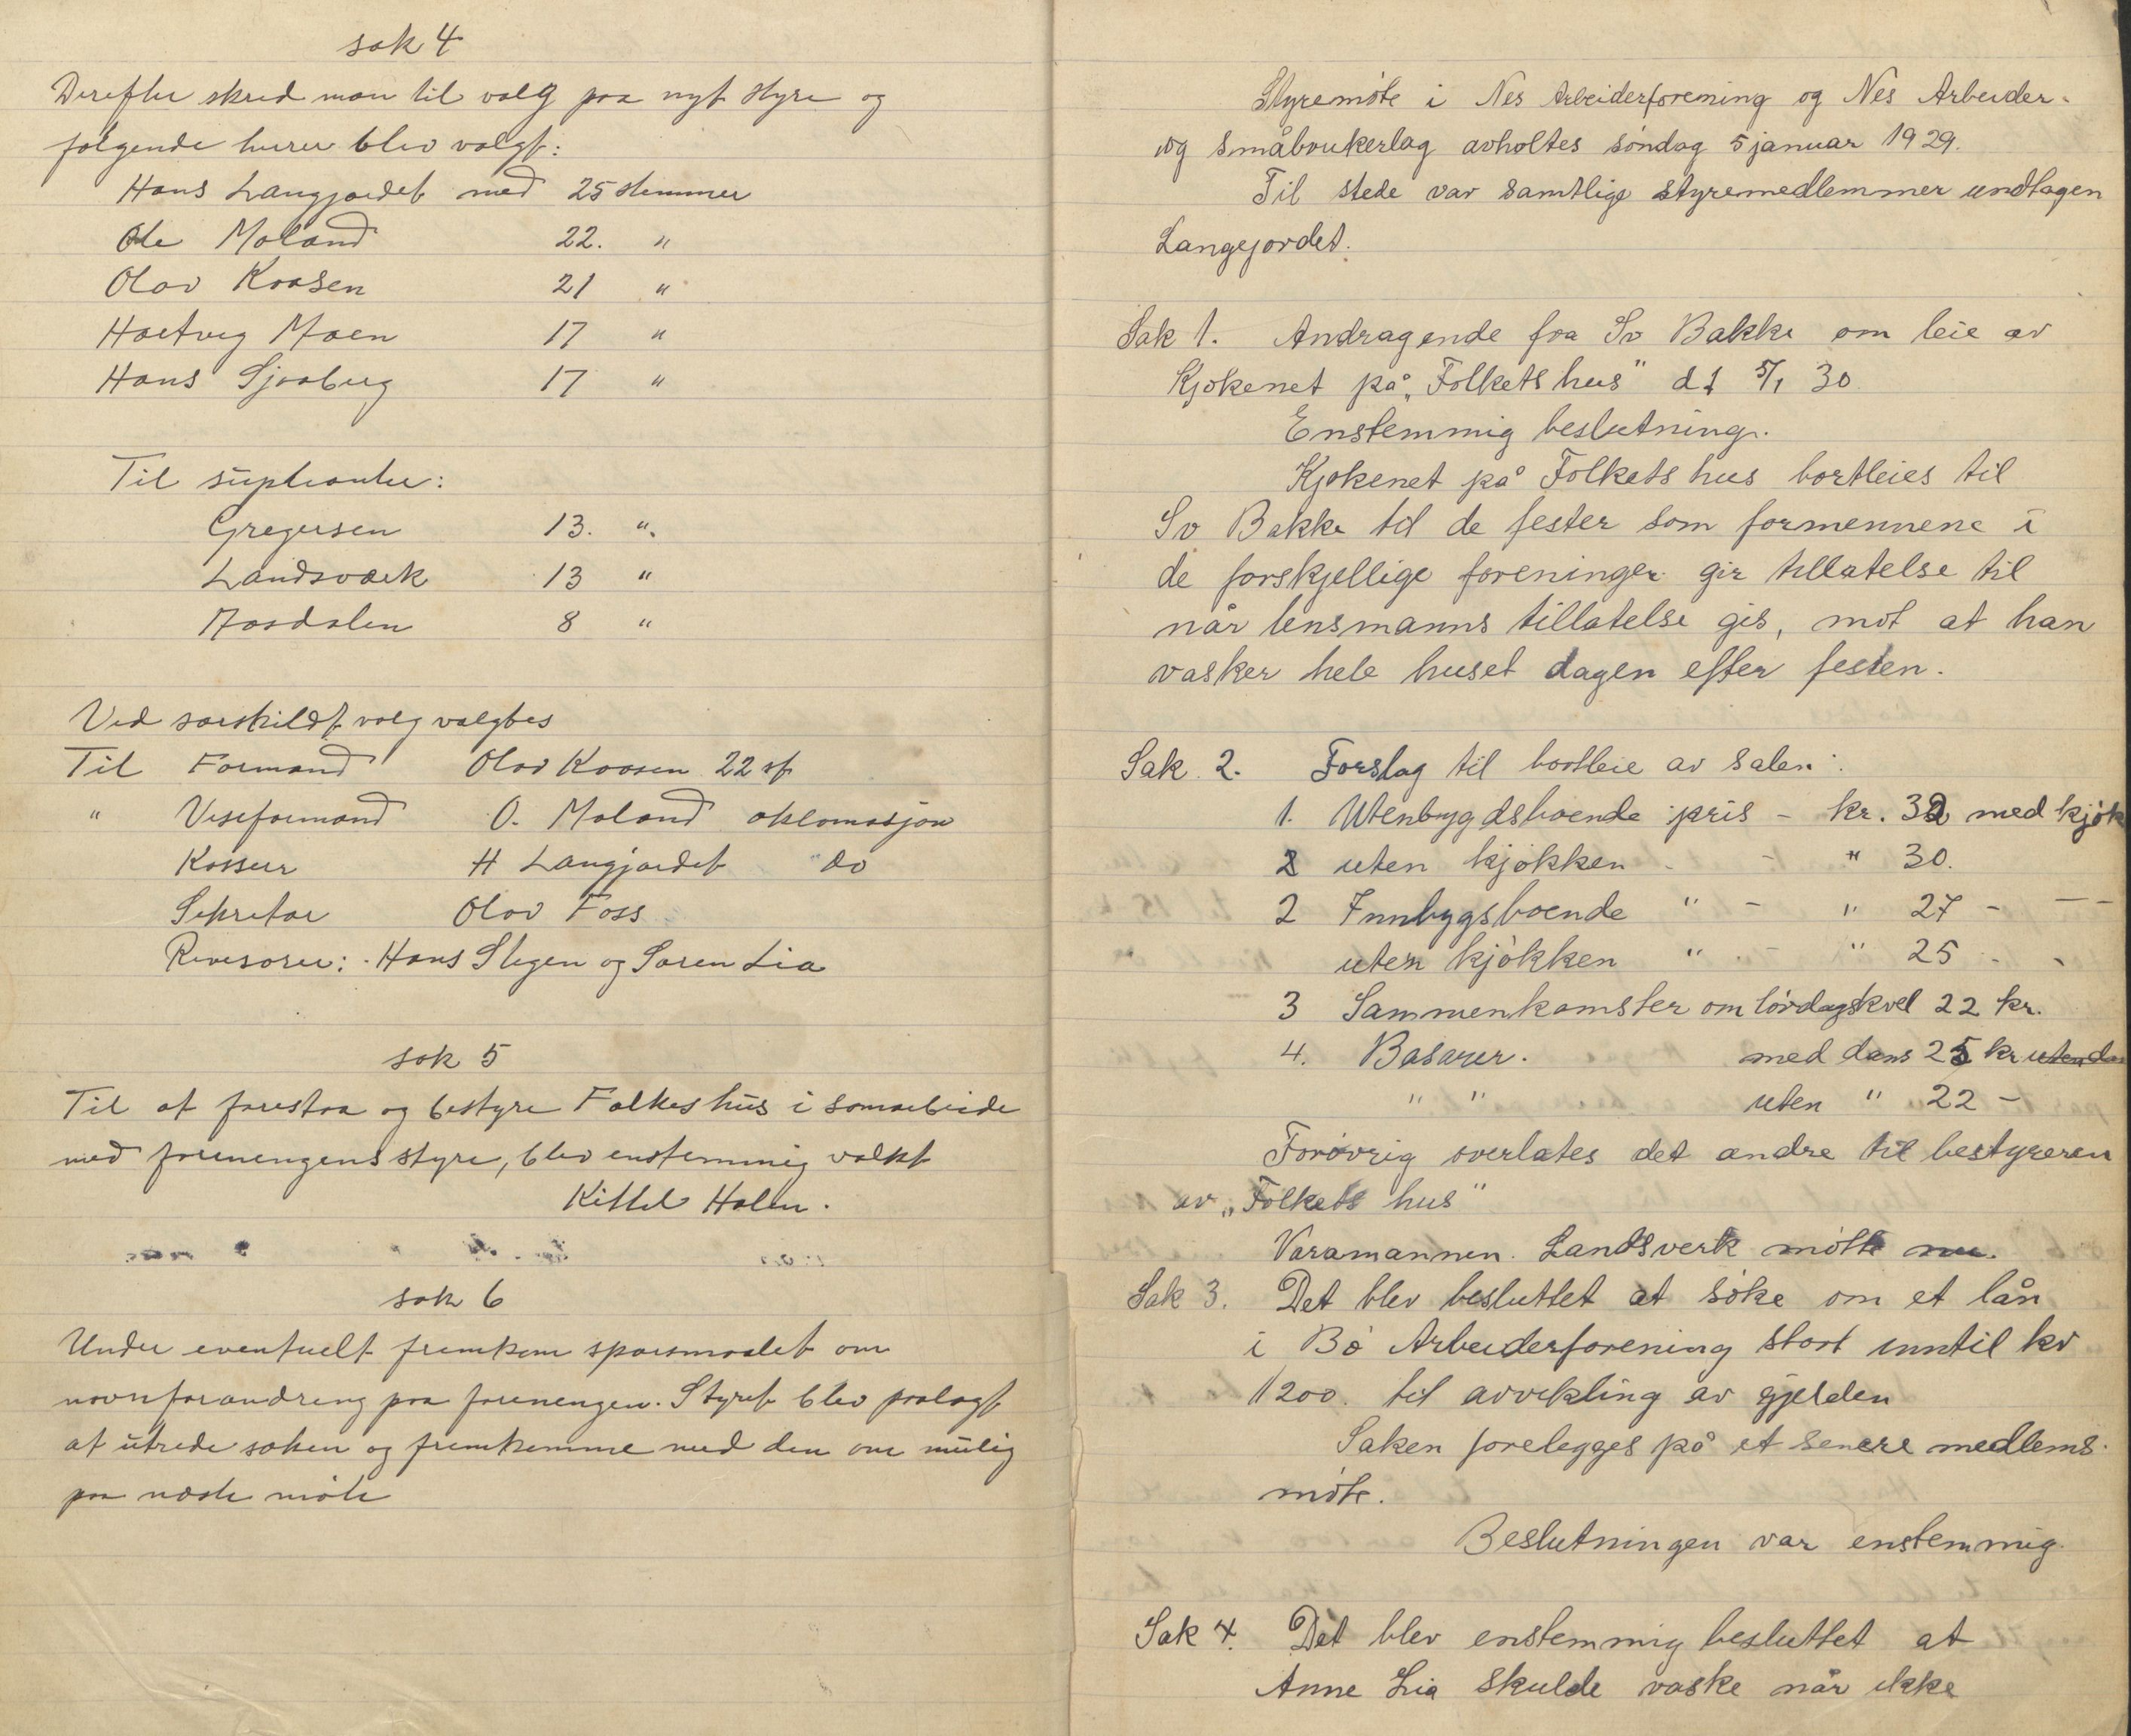 sak 4
Derefter skred man til valg paa nyt styre og
følgende herrer blev valgt:
Hans Langjordet med 25 stemmer
Ole Moland 22. "
Olav Kaasen 21 "
Hartvig Moen 17 "
Hans Sjaaberg 17 "
Til suplianter:
Gregersen 13. ".
Landsværk 13 "
Aasdalen 8 "
Ved særskildt valg valgtes
Til Formand Olav Kaasen 22 st
" Viseformand O. Moland aklamasjon
Kasser H Langjordet do
Sekretær Olav Foss
Revisorer: Hans Stegen og Søren Lia
sak 5
Til at forestaa og bestyre Folkes hus i samarbeide
med foreningens styre, blev enstemmig valkt
Kittel Holen.
sak 6
Under eventuelt fremkom spørsmaalet om
navnforandring paa foreningen. Styret blev paalagt
at utrede saken og fremkomme med den om mulig
paa næste møte
Styremøte i Nes Arbeiderforening og Nes Arbeider-
og småbrukerlag avholtes søndag 5 januar 1929.
Til stede var samtlige styremedlemmer undtagen
Langejordet.
Sak 1. Andragende fra Sv Bakke om leie av
Kjøkenet på "Folkets hus" d1 5/1 30
Enstemmig beslutning.
Kjøkenet på Folkets hus bortleies til
Sv Bakke til de fester som formennene i
de forskjellige foreninger gir tillatelse til
når lensmanns tillatelse gis, mot at han
vasker hele huset dagen efter festen.
Sak 2. Forslag til bortleie av salen:
1. Utenbygdsboende pris - kr. 32 med kjøk
2 uten kjøkken - - " 30.
2 Innbygsboende " - " 27 - - -
uten kjøkken " - " 25 - -
3 Sammenkomster om lørdagskvel 22 kr.
4. Basarer. med dans 25 kr uten da
" " uten " 22 -
Forøvrig overlates det andre til bestyreren
av "Folkets hus"
Varamannen. Landsverk møtte
Sak 3. Det blev besluttet at søke om et lån
i Bø Arbeiderforening stort inntil kr
1200. til avvikling av gjelden
Saken forelegges på et senere medlems-
møte.
Beslutningen var enstemmig.
Sak 4. Det blev enstemmig besluttet at
Anne Lia skulde vaske når ikke